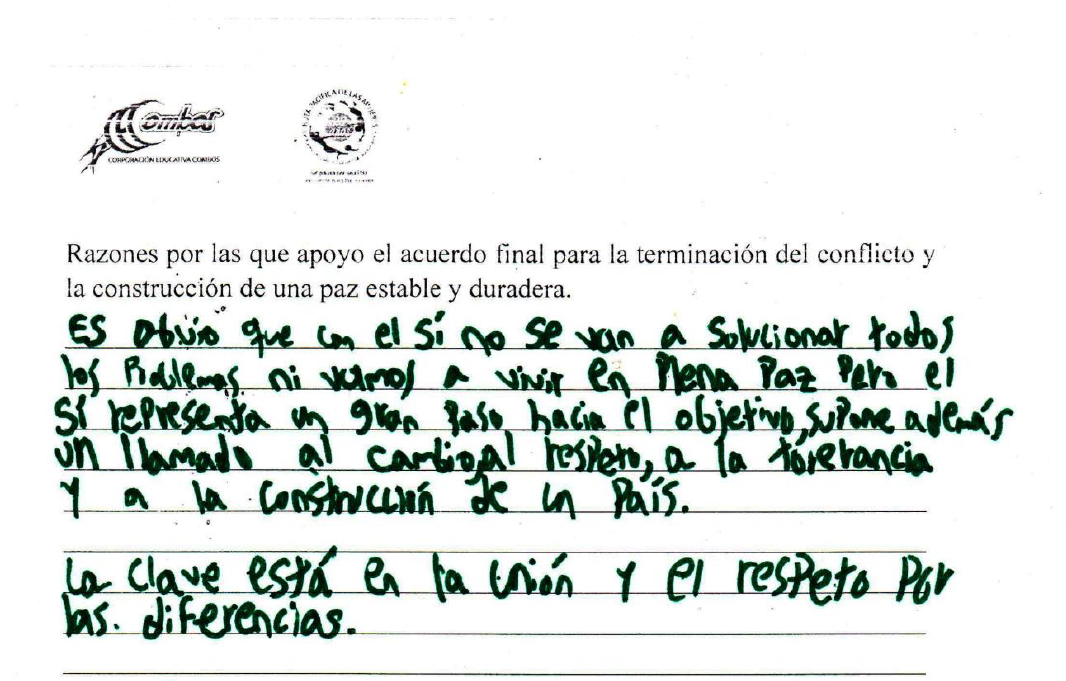 Combos
CORPORACIÓN EDUCATIVA COMBOS
RUTA PACÍFICA DE LAS MUJERES
Razones por las que apoyo el acuerdo final para la terminación del conflicto y
la construcción de una paz estable y duradera.
ES obvio que con el Sí no se van a Solucionar todos
los Problemas ni vamos a vivir en Plena Paz Pero el
Sí representa un gran Paso hacia el objetivo, supone además
un llamado al cambio, al resPeto, a la tolerancia
Y a la construcción de un País.
La clave está en la Unión Y el resPeto Por
las. diferencias.